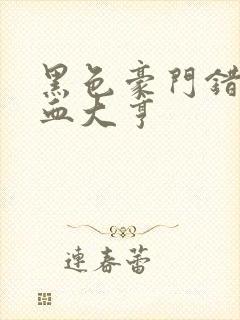 黑色豪門錯
血大亨
連春蕾